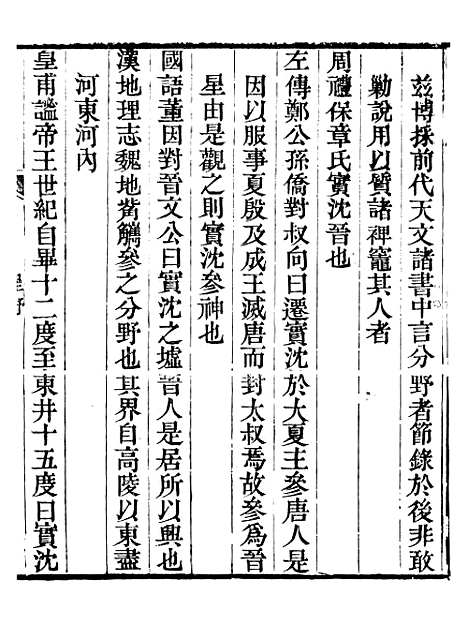 兹博採前代天文諸書中言分野者節錄於後非敢
勦說用以質諸裨竈其人者
周禮保章氏實沈晉也
左傳鄭公孫僑對叔向曰遷實沈於大夏主參唐人是
因以服事夏殷及成王滅唐而封太叔焉故參爲晉
星由是觀之則實沈參神也
國語董因對晉文公曰實沈之墟晉人是居所以興也
漢地理志魏地觜觿參之分野也其界自高陵以東盡
河東河內
皇甫謐帝王世紀自畢十二度至東井十五度曰實沈